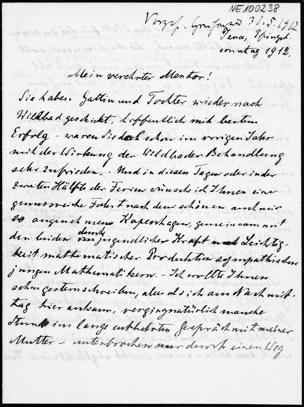 NE100238
Jena, Pfingst-
sonntag 1912.
Mein verehrter Mentor!
Sie haben Gattin und Tochter wieder nach
Wildbad geschickt, hoffentlich mit bestem
Erfolg - waren Sie doch schon im vorigen Jahr
mit der Wirkung der Wildbader Behandlung
sehr zufrieden. - Und in diesen Tagen oder in der
zweiten Hälfte der Ferien wünsche ich Ihnen eine
genussreiche Fahrt nach dem schönen auch mir
so angenehmen Kopenhagen, gemeinsam mit
den beiden durch jugendlicher Kraft und Leichtig-
keit mathematischer Production sympathischen
jungen Mathematikern. - Ich wollte Ihnen
schon gestern schreiben, aber als ich am Nachmit-
tag hier ankam, verging natürlich manche
Stunde im lange entbehrten Gespräch mit meiner
Mutter - unterbrochen nur durch einen Weg